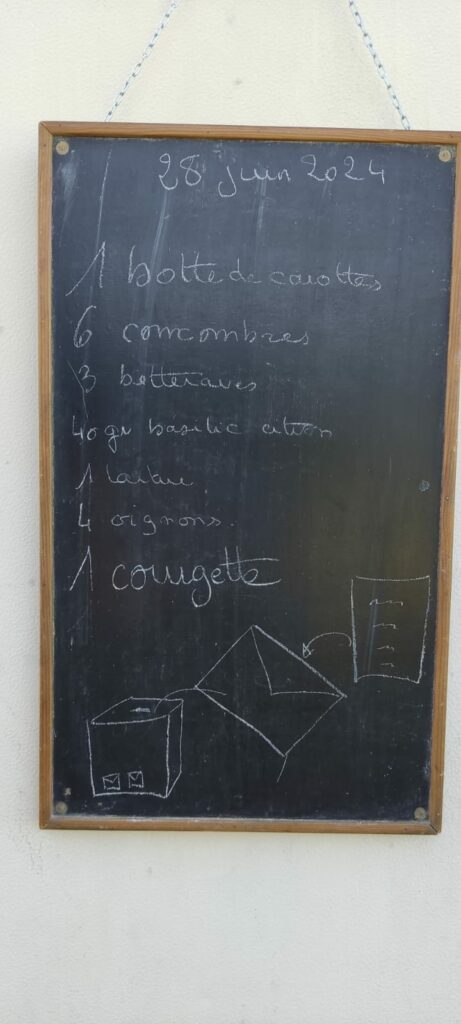 28 juin 2024
1 botte de carottes
6 concombres
3 betteraves
40 gr basilic citron
1 laitue
4 oignons.
1 courgette